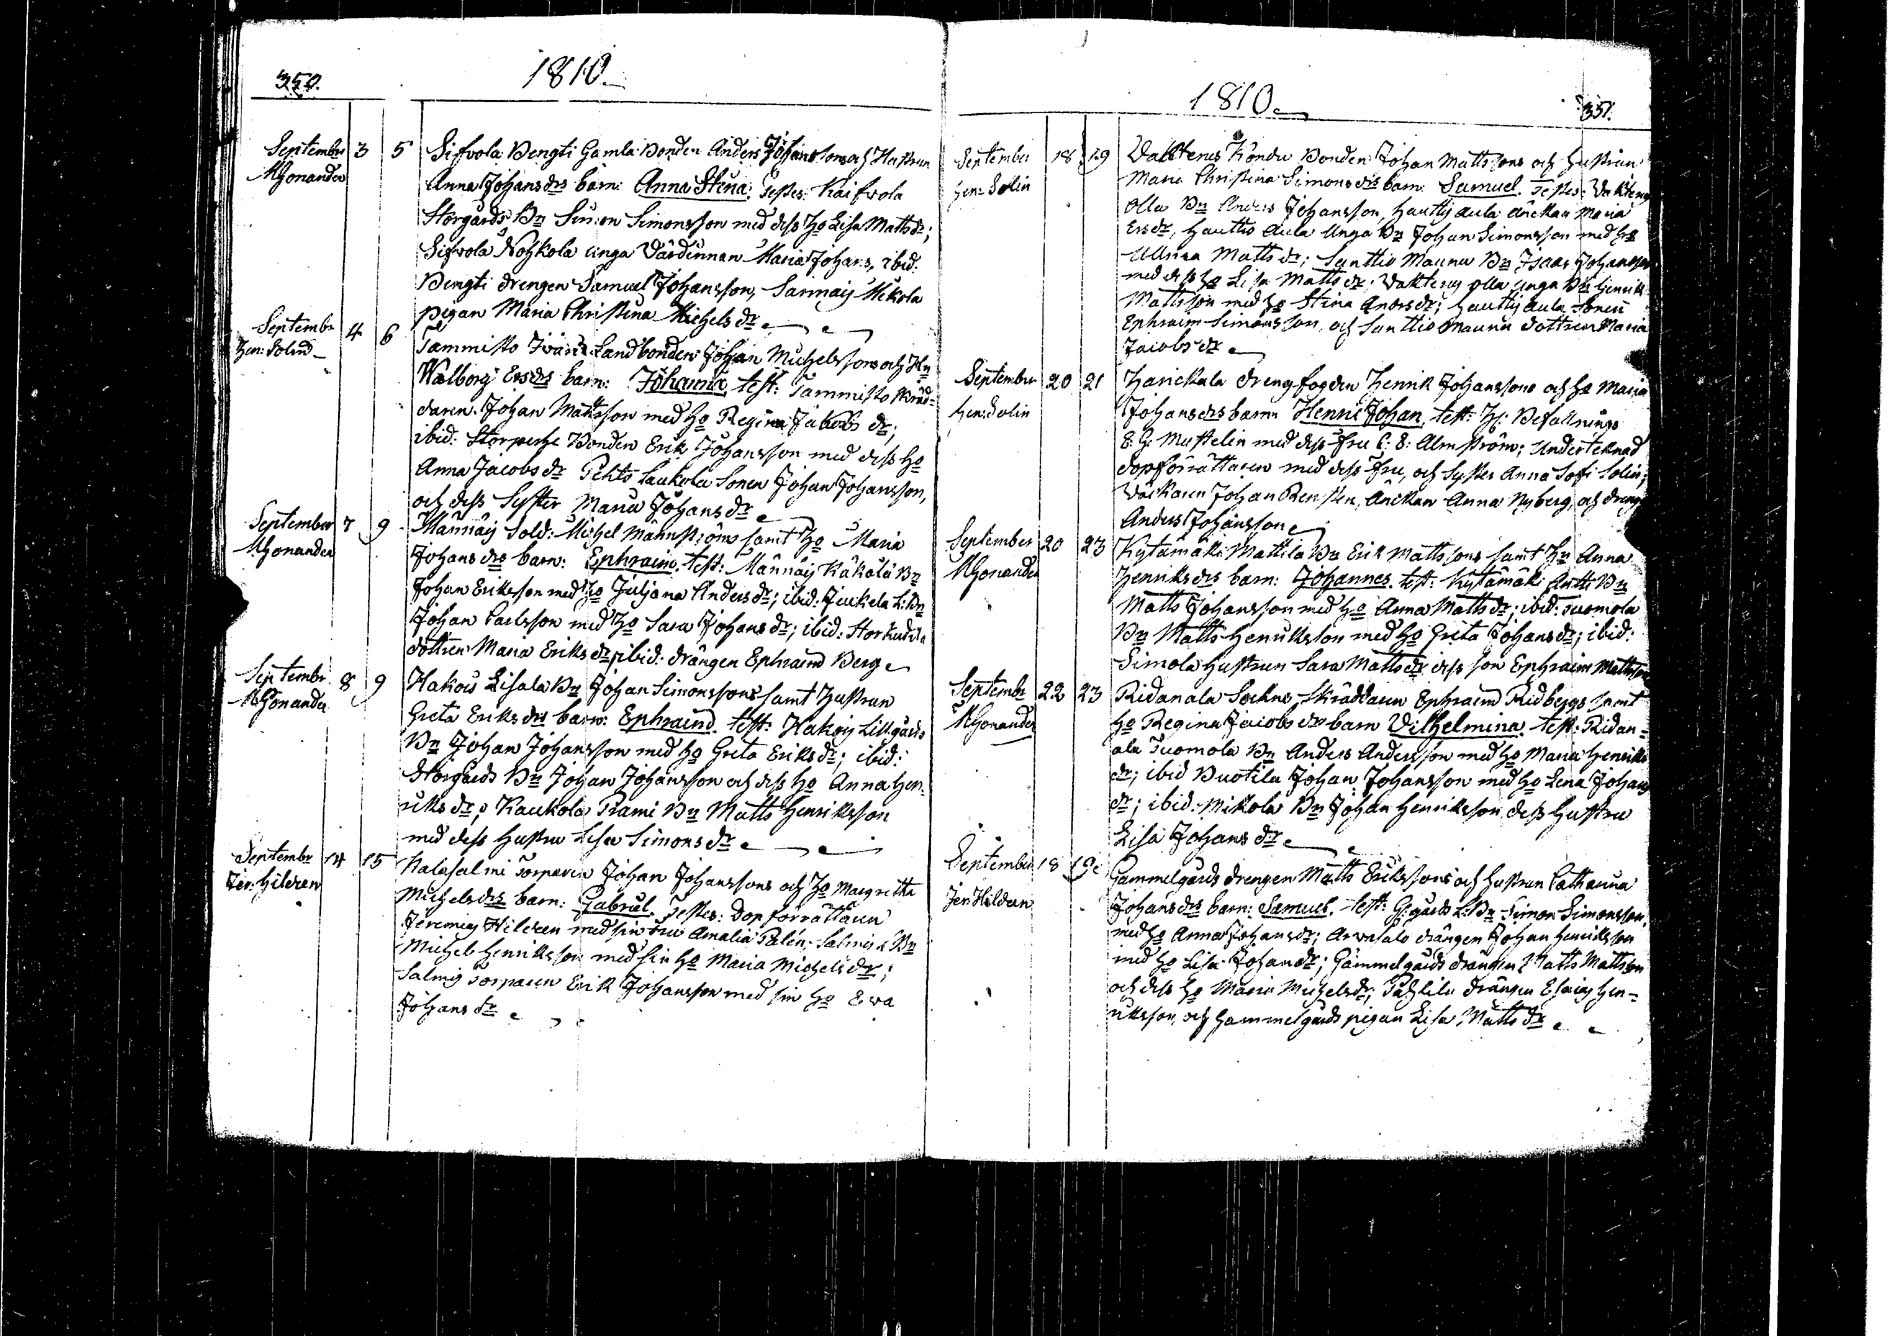 350.
1810.
September 3 5 Sifvola Bengti Gamla Bonden Anders Johanssons och Hustrun
MGonander Anna Johansdrs barn: Anna Stina. Testes: Kaifvola
Storgårds Bn Simon Simonsson med dess Ho Lisa Mattsdr;
Sifvola Nohkola unga Värdinnan Maria Johans, ibid:
Bengti drengen Samuel Johansson, Sarmaij Mikola
pigan Maria Christina Michels dr
September 4 6 Tammisto Landbonden Johan Michelssons och Hu
Hen: Solin Walborg Ersdrs barn: Johanna, test: Tammisto skräd-
daren Johan Mattsson med Ho Regina Jakobs dr;
ibid: Bonden Erik Johansson med dess Ho
Anna Jacobs dr Laukola Sonen Johan Johansson,
och dess Syster Maria Johans dr
September 7 9 Männäis Sold: Michel samt Ho Maria
MGonander Johans drs barn: Ephraim, test: Männäis Käkölä Bn
Johan Eriksson med Ho Juljana Andersdr; ibid: Juckela L: Bn
Johan Carlsson med Ho Sara Johans dr; ibid:
dottren Maria Eriks dr, ibid: drängen Ephraim Berg
September 8 9 Hakois Lisala Bn Johan Simonssons samt Hustrun
MGonander Greta Eriks drs barn: Ephraim. test: Hakois Lillgårds
Bn Johan Johansson med Ho Greta Eriks dr; ibid:
Storgårds Bn Johan Johansson och dess Ho Anna Hen-
riks dr; Kaukola Prami Bn Matts Henriksson
med dess Hustru Lisa Simons dr
September 14 15 Kalasalmi Torparen Johan Johanssons och Ho Margretha
Jer: Hildeen Michels drs barn: Gabriel. Testes: Dopförrättaren
Jeremias Hildeen med sin Fru Amalia Palén; Salmis L Bn
Michel Henriksson med sin Ho Maria Michels dr;
Salmis Torparen Erik Johansson med sin Ho Eva
Johans dr
1810.
351.
September 18 19 Vakterus Köndu Bonden Johan Mattssons och Hustrun
Hen: Solin Maria Christina Simonsdrs barn: Samuel. Testes: Vakterus
Olla Bn Anders Johansson, Hauttis Aula Änckan Maria
Ersdr, Hauttis Aula Unga Bn Johan Simonsson med Ho
Ulrica Matts dr; Santtio Maunu Bn Isaac Johansson
med dess Ho Lisa Matts dr; Vakterus olla unga Bn Henrik
Mattsson med Ho Stina Anders dr; Hauttis Aula Sonen
Ephraim Simonsson, och Santtio Maunu dottren Maria
Jacobs dr
September 20 21 Harickala Drengfogden Henrik Johanssons och Ho Maria
Hen: Solin Johans drs barn: Henric Johan, test: H: Befallnings
E. G. Mustelin med dess Fru C: E: Almström; Undertecknad
dopförrättaren med dess Fru, och Syster Anna Sofi Solin;
Johan Änckan Anna Nyberg, och drengen
Anders Johansson
September 20 23 Kytämäki Mattila Bn Erik Mattssons samt Hu Anna
MGonander Henriks drs barn: Johannes. test: Kytämäki Anttila Bn
Matts Johansson med Ho Anna Matts dr; ibid: Tuomola
Bn Matts Henriksson med Ho Greta Johans dr; ibid:
Simola Hustrun Sara Matts dr dess son Ephraim Mattsson
September 22 23 Ridanala Sockne-Skräddaren Ephraim Ridbergs samt
MGonander Ho Regina Jacobs drs barn Vilhelmina. test: Ridan-
ala Tuomola Bn Anders Andersson med Ho Maria Henriks
dr; ibid Buotila Johan Johansson med Ho Lena Johans
dr; ibid: Mikola Bn Johan Henriksson dess Hustru
Lisa Johans dr
September 18 19 Gammelgårds drengen Matts Erikssons och Hustrun Catharina
Jer: Hildeen Johans drs barn: Samuel. test: G:gårds L: Bn Simon Simonsson
med Ho Anna Johans dr; Arvasalo drängen Johan Henriksson
med Ho Lisa Johans dr; Gammelgårds drängen Matts Mattsson
och dess Ho Maria Michelsdr; drängen Esaias Hen-
riksson, och Gammelgårds pigan Lisa Matts dr